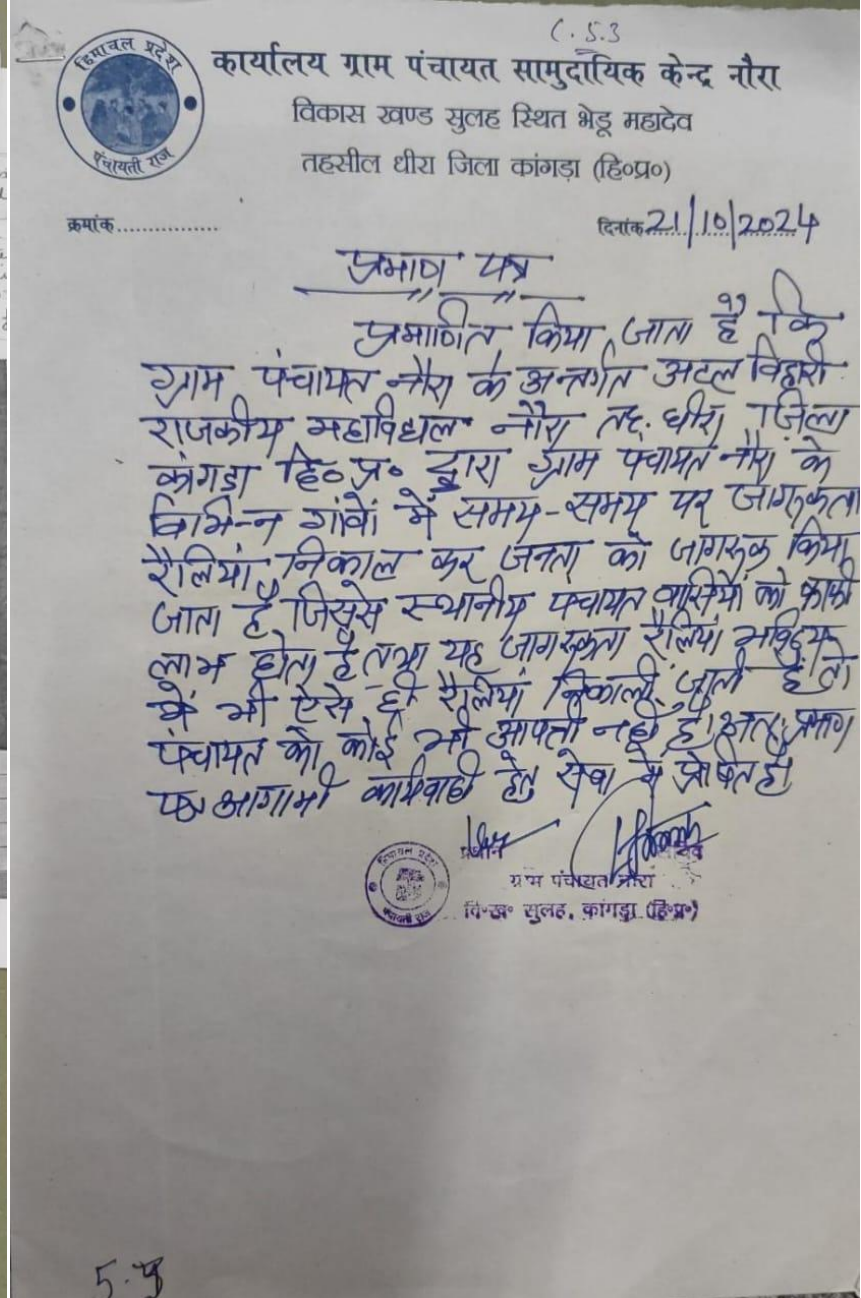 C. 5.3
हिमाचल प्रदेश
पंचायती राज
कार्यालय ग्राम पंचायत सामुदायिक केन्द्र नौरा
विकास खण्ड सुलह स्थित भेडू महादेव
तहसील धीरा जिला कांगड़ा (हि०प्र०)
क्रमांक............... दिनांक 21/10/2024
प्रमाण पत्र
प्रमाणित किया जाता है कि
ग्राम पंचायत नौरा के अन्तर्गत अटल विहारी
राजकीय महाविधाल नौरा तह. धीरा जिला
कांगड़ा हि०प्र० द्वारा ग्राम पंचायत नौरा के
विभिन्न गांवों में समय-समय पर जागरूकता
रैलियां निकाल कर जनता को जागरूक किया
जाता है जिससे स्थानीय पंचायत वासियों को काफी
लाभ होता है तथा यह जागरूकता रैलियां भविष्य
में भी ऐसे ही रैलियां निकाली जाती है तो
पंचायत को कोई भी आपती नही है। अतः प्रमाण
पत्र आगामी कार्यवाही हेतु सेवा में प्रेषित है।
प्रधान सचिव
हिमाचल प्रदेश
पंचायती राज
ग्राम पंचायत नौरा
वि०ख० सुलह, कांगड़ा (हि०प्र०)